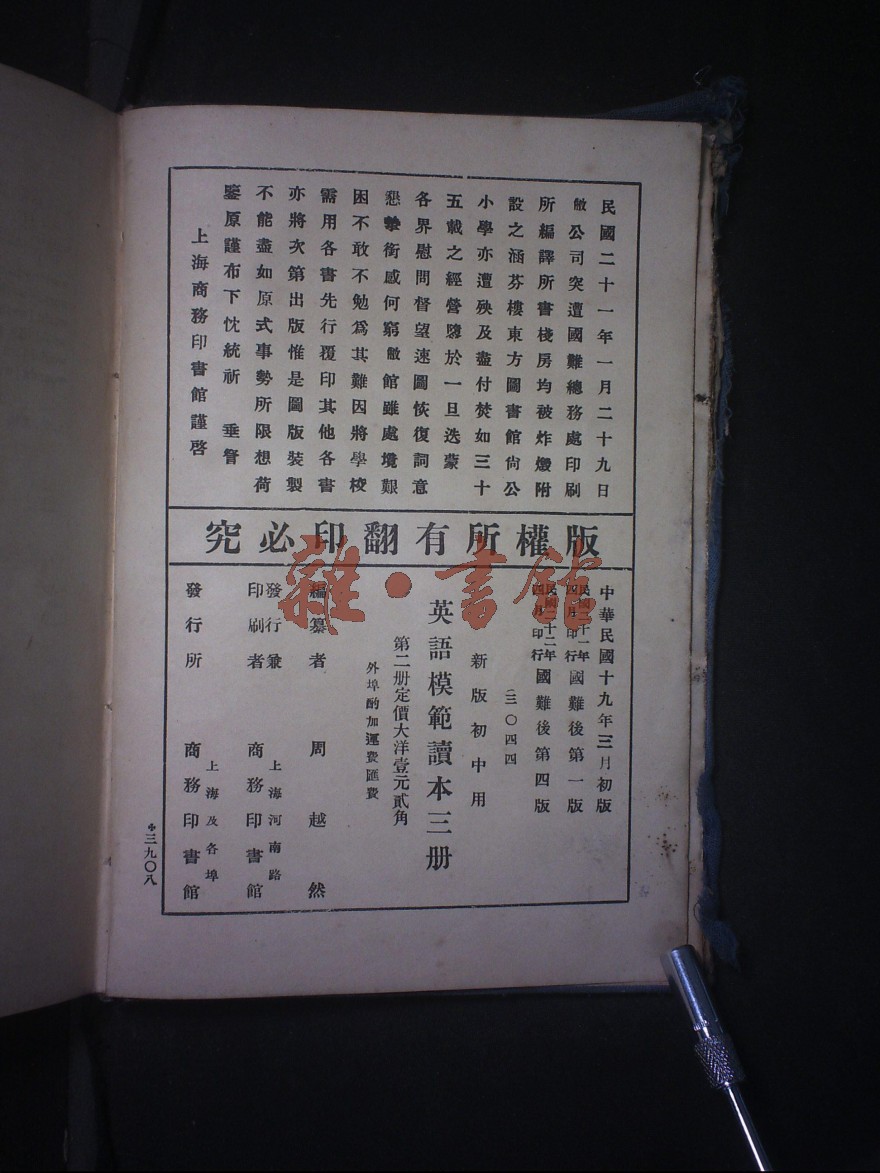 民國二十一年一月二十九日
敝公司突遭國難總務處印刷
所編譯所書棧房均被炸燬附
設之涵芬樓東方圖書館尙公
小學亦遭殃及盡付焚如三十
五載之經營隳於一旦迭蒙
各界慰問督望速圖恢復詞意
懇摯銜感何窮敝館雖處境艱
困不敢不勉爲其難因將學校
需用各書先行覆印其他各書
亦將次第出版惟是圖版裝製
不能盡如原式事勢所限想荷
鑒原謹布下忱統祈 垂詧
上海商務印書館謹啓
究必印翻有所權版
中華民國十九年三月初版
民國二十一年四月印行國難後第一版
民國二十二年四月印行國難後第四版
(三〇四四
新版初中用
英語模範讀本三册
第二册定價大洋壹元貳角
外埠酌加運費匯費
編纂者 周越然
發行兼印刷者 上海河南路 商務印書館
發行所 上海及各埠 商務印書館
三九〇八
雜·書館